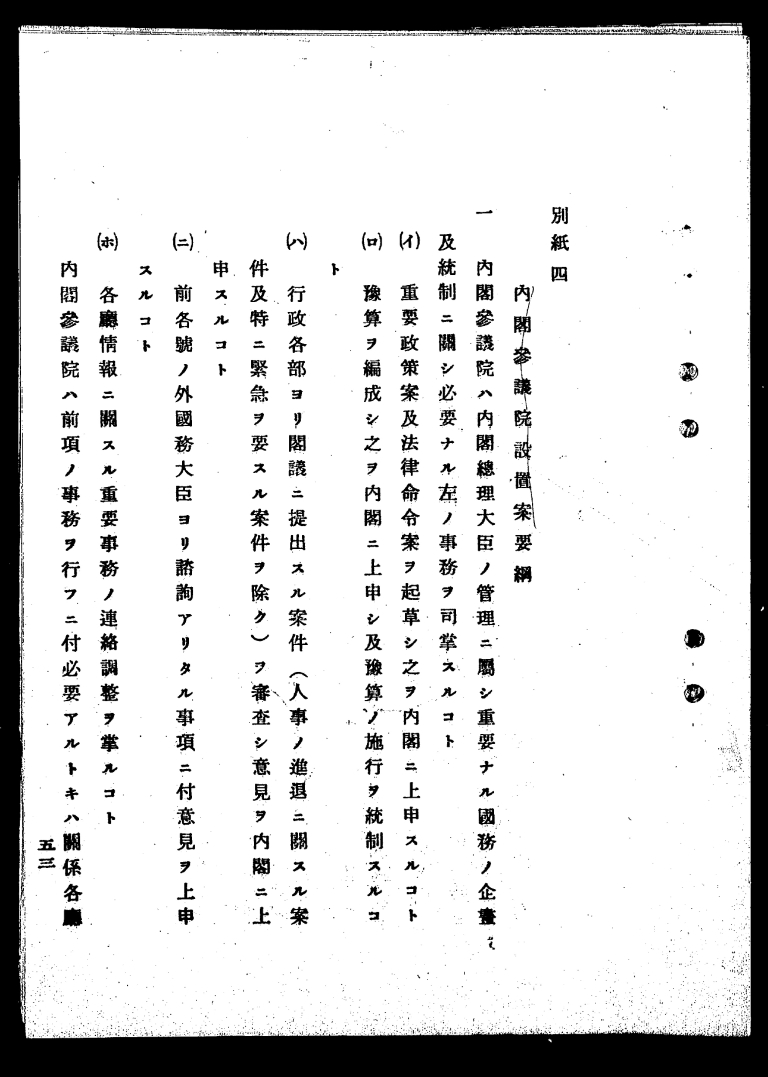 別紙四
內閣參議院設置案要綱
一 內閣參議院ハ內閣總理大臣ノ管理ニ屬シ重要ナル國務ノ企畫
及統制ニ關シ必要ナル左ノ事務ヲ司掌スルコト
(イ) 重要政策案及法律命令案ヲ起草シ之ヲ內閣ニ上申スルコト
(ロ) 豫算ヲ編成シ之ヲ內閣ニ上申シ及豫算ノ施行ヲ統制スルコ
ト
(ハ) 行政各部ヨリ閣議ニ提出スル案件(人事ノ進退ニ關スル案
件及特ニ緊急ヲ要スル案件ヲ除ク)ヲ審査シ意見ヲ內閣ニ上
申スルコト
(ニ) 前各號ノ外國務大臣ヨリ諮詢アリタル事項ニ付意見ヲ上申
スルコト
(ホ) 各廳情報ニ關スル重要事務ノ連絡調整ヲ掌ルコト
內閣參議院ハ前項ノ事務ヲ行フニ付必要アルトキハ關係各廳
五三